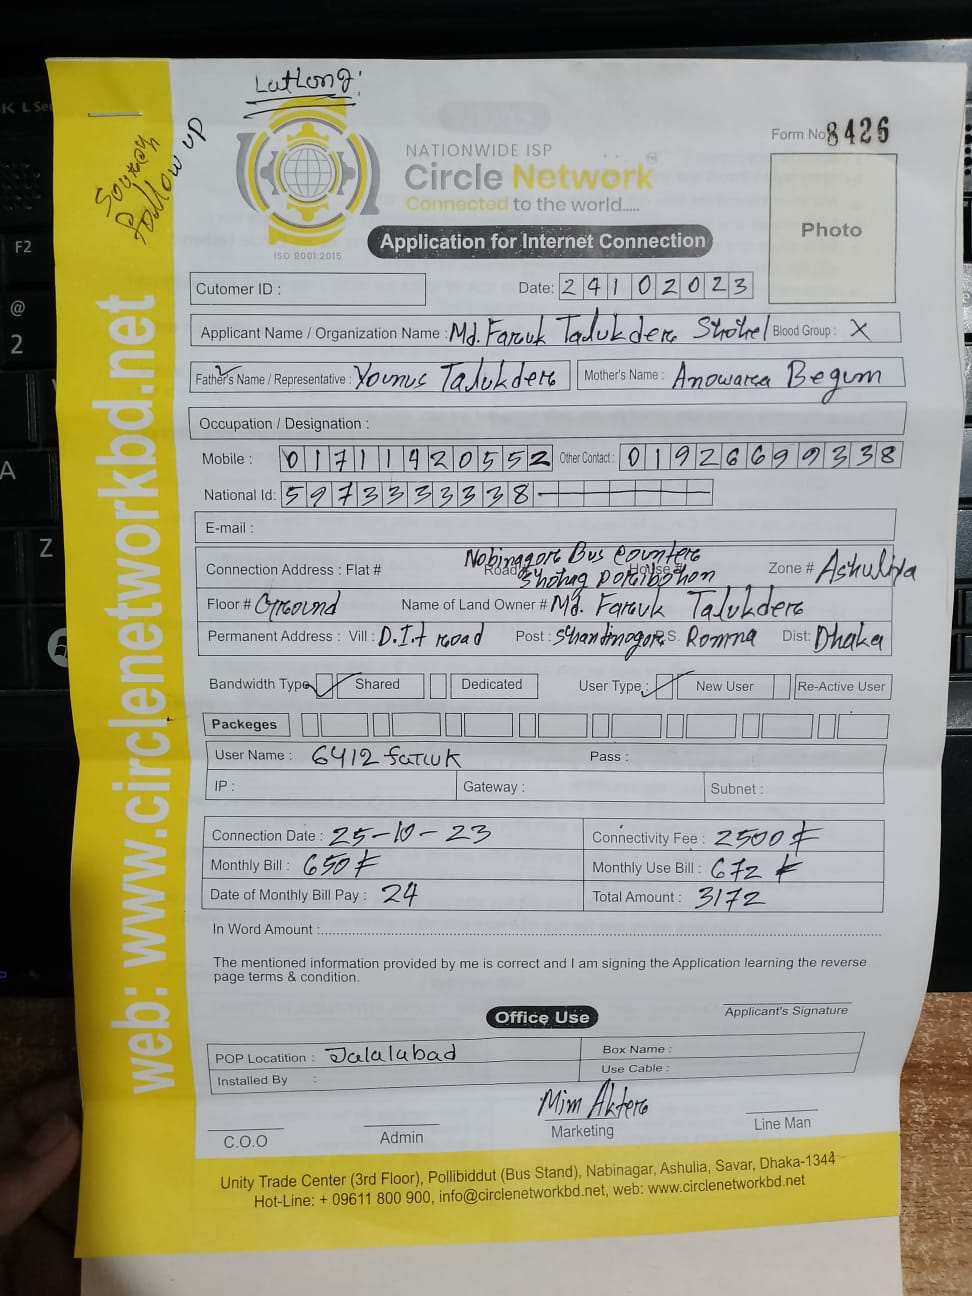 LatLong:
Follow up
NATIONWIDE ISP
Circle Network
Connected to the world.....
ISO 9001:2015
Form No 8426
Photo
Application for Internet Connection
Cutomer ID :
Date: 24102023
Applicant Name / Organization Name : Md. Faruk Talukdere Shohel Blood Group : X
Father's Name / Representative : Younus Talukdere Mother's Name : Anowarea Begum
Occupation / Designation :
Mobile : 01711420552 Other Contact : 01926699338
National Id: 5973333338
E-mail :
Nobinagore Bus Countere
Connection Address : Flat # Road House # Zone # Ashuliya
Shohag Poribohon
Floor # Ground Name of Land Owner # Md. Faruk Talukdere
Permanent Address : Vill : D.I.t road Post : Shantinagore P.S. Romna Dist: Dhaka
Bandwidth Type Shared Dedicated User Type : New User Re-Active User
Packeges
User Name : 6412 faruk Pass :
IP : Gateway : Subnet :
Connection Date : 25-10-23 Connectivity Fee : 2500 ৳
Monthly Bill : 650 ৳ Monthly Use Bill : 672 ৳
Date of Monthly Bill Pay : 24 Total Amount : 3172
In Word Amount :
The mentioned information provided by me is correct and I am signing the Application learning the reverse
page terms & condition.
Applicant's Signature
Office Use
POP Locatition : Jalalabad Box Name :
Installed By : Use Cable :
Mim Aktere
C.O.O Admin Marketing Line Man
Unity Trade Center (3rd Floor), Pollibiddut (Bus Stand), Nabinagar, Ashulia, Savar, Dhaka-1344
Hot-Line: + 09611 800 900, info@circlenetworkbd.net, web: www.circlenetworkbd.net
web: www.circlenetworkbd.net
F2
@
2
A
Z